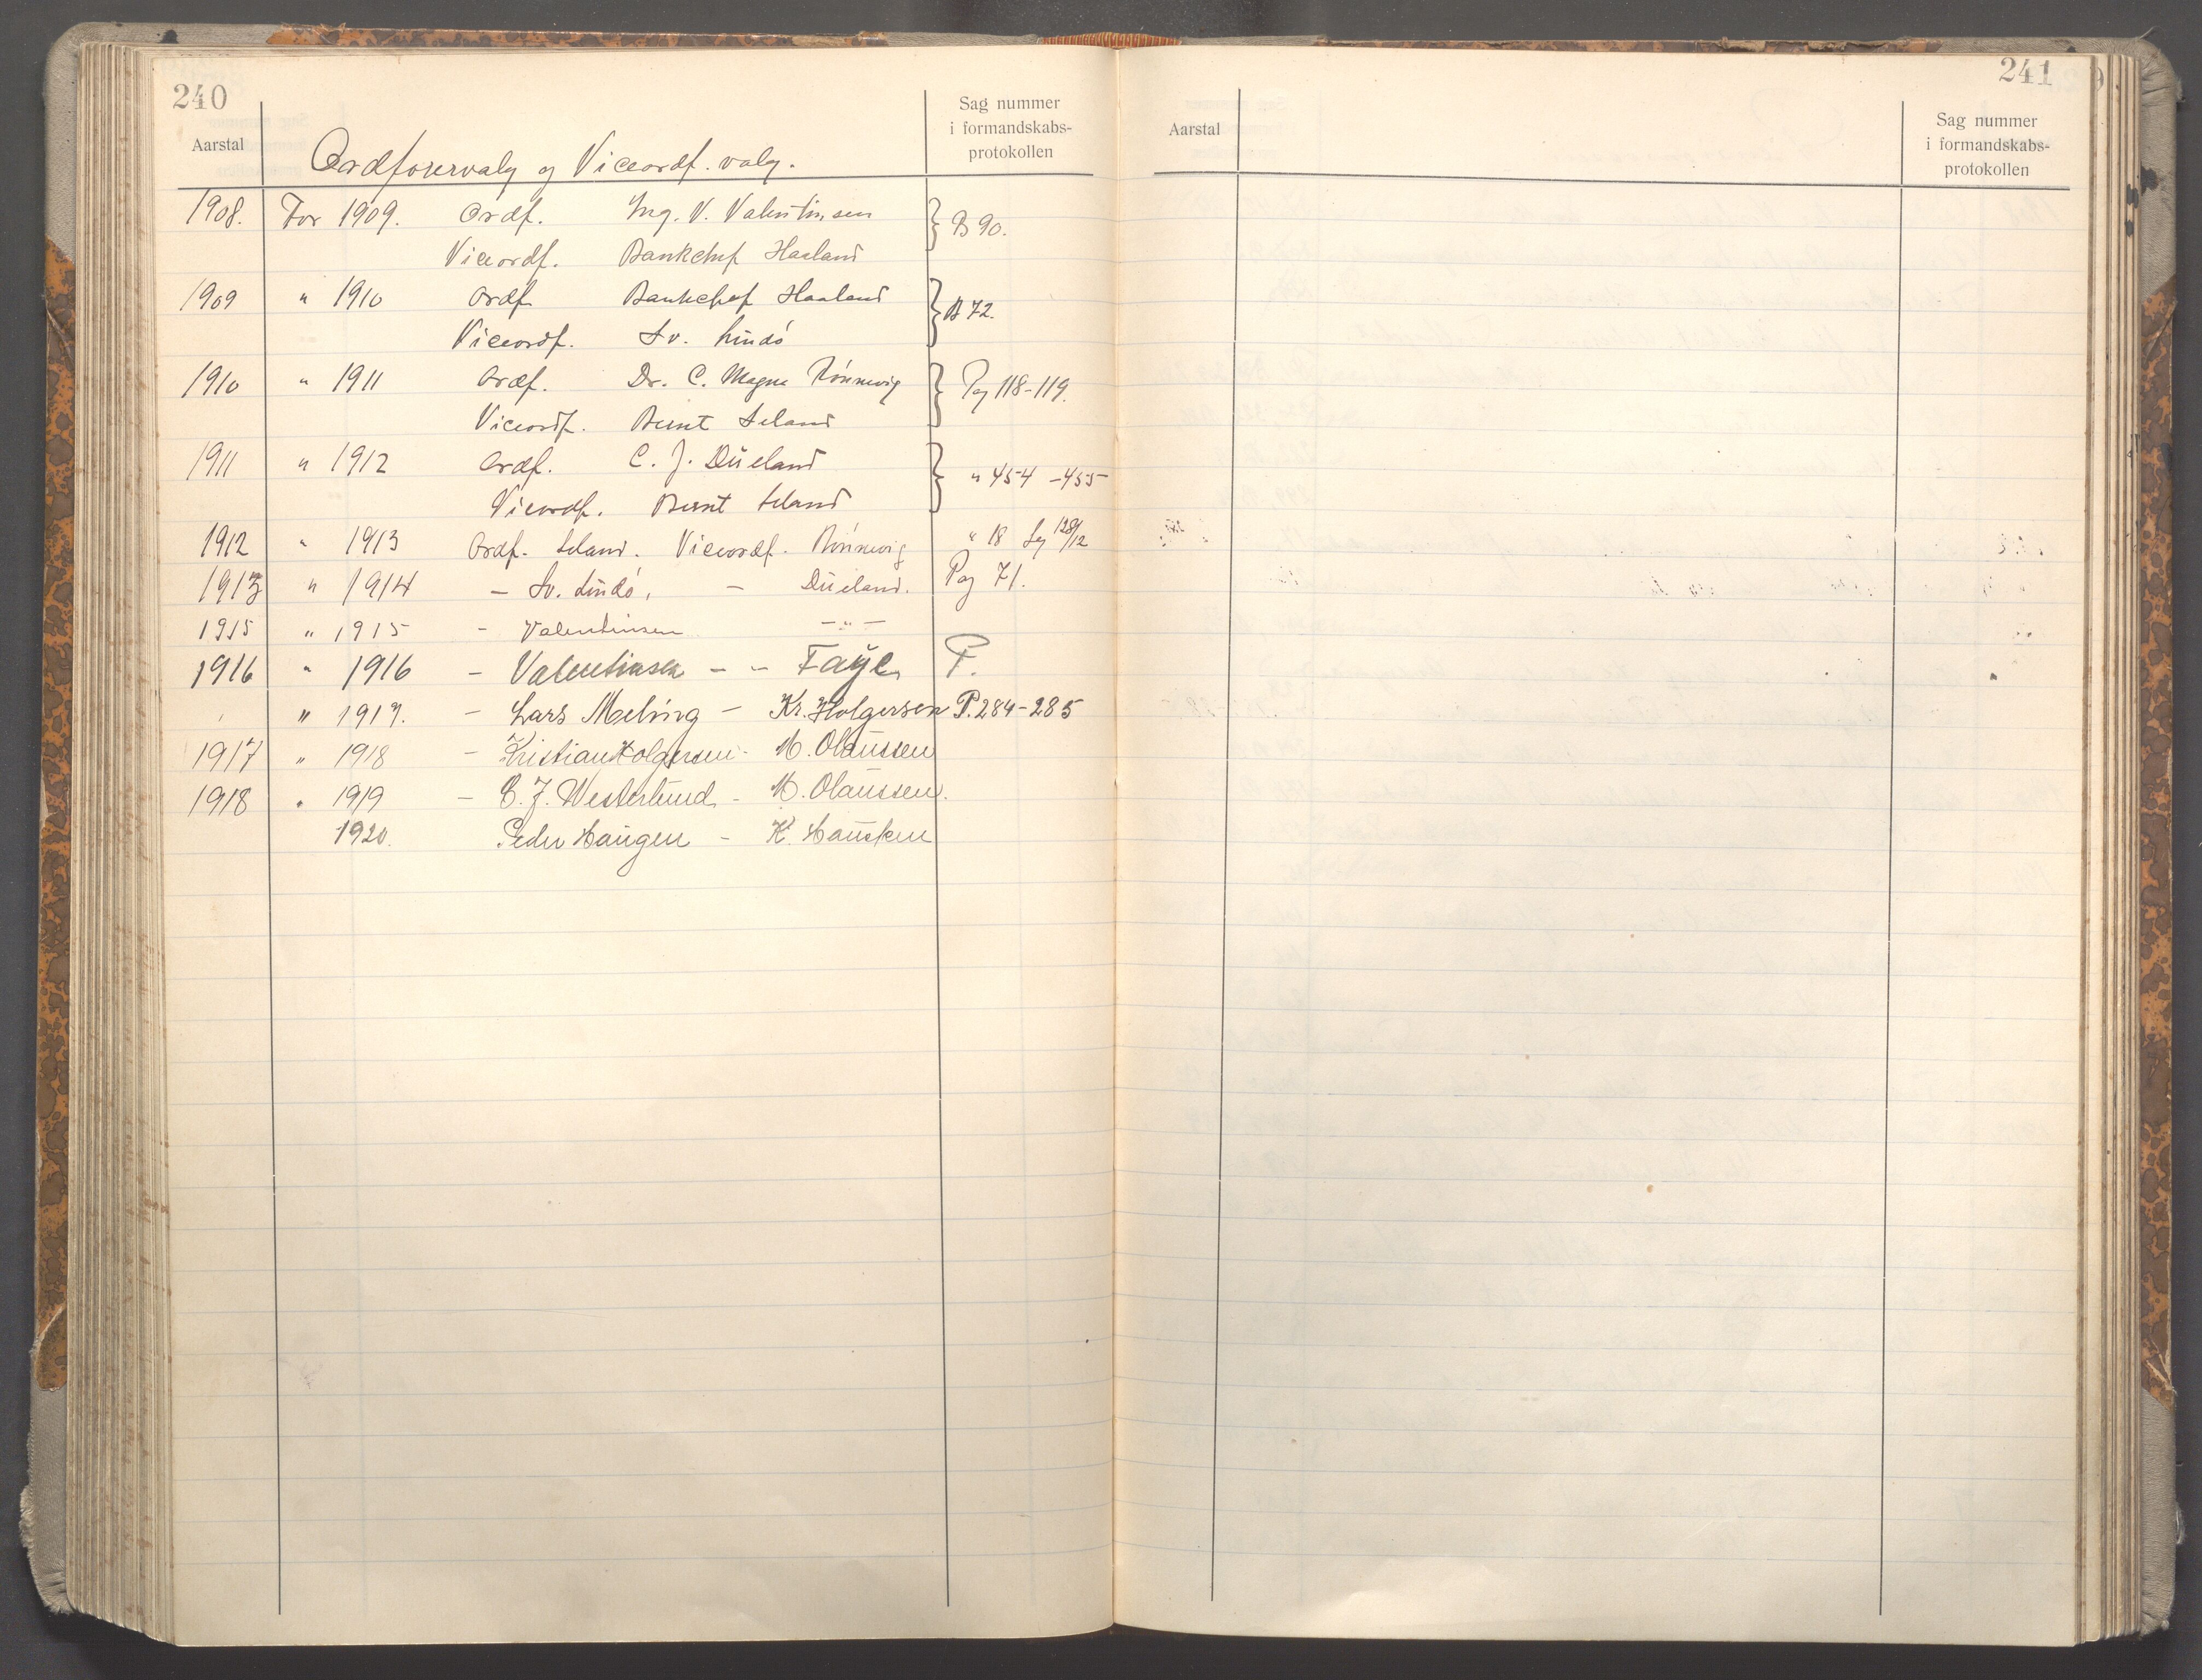 240
Aarstal
Ordförervalg og Viceordf. valg.
Sag nummer
i formandskabs-
protokollen
1908. For 1909. Ordf. Ing. V. Valentinsen
Viceordf. Bankchef Haaland
B 90.
1909 " 1910 Ordf. Bankchef Haaland
Viceordf. Sv. Lindö
B 72.
1910 " 1911 Ordf. Dr. C. Magne Rönnevig
Viceordf. Bernt Seland
Pag 118-119.
1911 " 1912 Ordf. C. J. Düeland
Viceordf. Bernt Seland
" 454-455
1912 " 1913 Ordf. Seland. Viceordf. Rönnevig " 18
1913 " 1914 - Sv. Lindö, - Düeland. Pag 71.
1915 " 1915 - Valentinsen - " -
1916 " 1916 - Valentinsen - - Faye P.
" 1917. - Lars Meling - Kr. Holgersen P. 284-285
1917 " 1918 - Kristian Holgersen - M. Olaussen
1918 " 1919 - C. J. Westerlund - M. Olaussen.
1920. Peder Haugen - K. Hausken
241
Aarstal
Sag nummer
i formandskabs-
protokollen